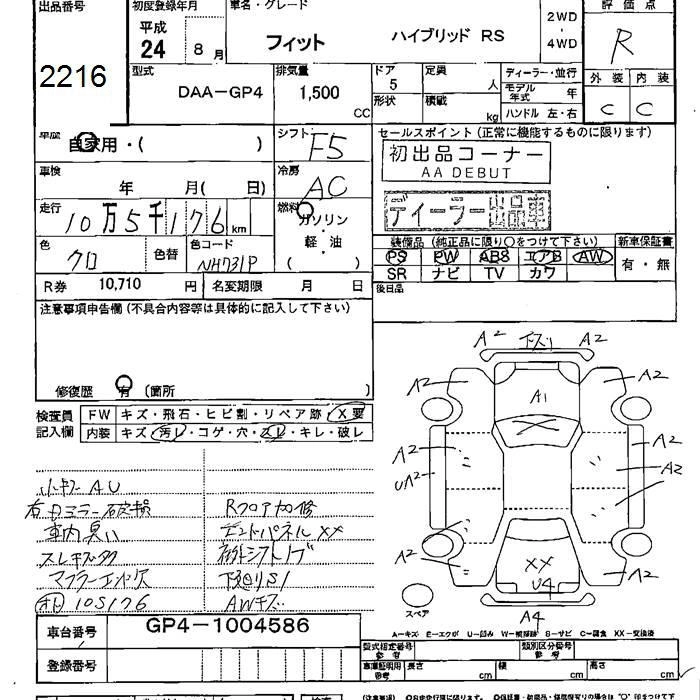 出品番号
初度登録年月
車名・グレード
評価点
平成
24 8 月
フィット ハイブリッド RS
2WD
・
4WD
R
2216
型式
DAA-GP4
排気量
1,500
CC
ドア
5
定員
人
形状
積載
kg
ディーラー・並行
モデル年式 年
ハンドル 左・右
外装 内装
C C
車歴
自家用・( )
シフト
F5
セールスポイント(正常に機能するものに限ります)
初出品コーナー
AA DEBUT
車検
年 月( 日)
冷房
AC
ディーラー出品車
走行
10万5千176 km
燃料
ガソリン
・
軽・油
( )
色
クロ
色替
色コード
NH731P
装備品(純正品に限り○をつけて下さい)
新車保証書
PS PW ABS エアB AW
SR ナビ TV カワ
有・無
R券 10,710 円
名変期限 月 日
後日品
注意事項申告欄(不具合内容等は具体的に記入して下さい)
修復歴 有 (箇所 )
検査員
記入欄
FW キズ・飛石・ヒビ割・リペア跡・X要
内装 キズ・汚レ・コゲ・穴・スレ・キレ・破レ
A2 A2
A2 A1 A2
A2 A2
UA2 A2
A2 XX A2
U4
A4
スペア
小キズAU
右ドミラー破損
車内臭い
Rフロア加修
エンドパネルXX
下廻りS1
AWキズ
105176
車台番号
GP4-1004586
登録番号
A-キズ E-エクボ U-凹み W-補修跡 S-サビ C-腐食 XX-交換済
型式指定番号
参考
類別区分番号
参考
車庫証明用
参考
長さ cm 幅 cm 高さ cm